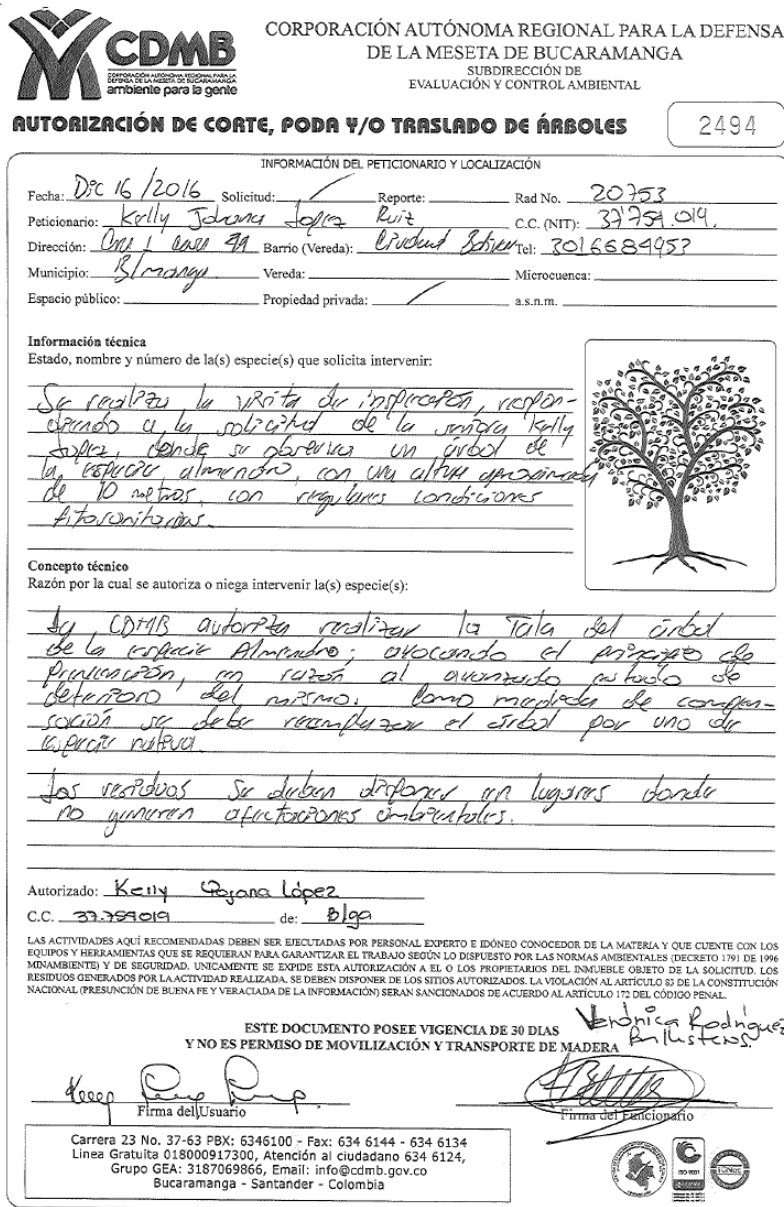 CDMB
CORPORACIÓN AUTÓNOMA REGIONAL PARA LA
DEFENSA DE LA MESETA DE BUCARAMANGA
ambiente para la gente
CORPORACIÓN AUTÓNOMA REGIONAL PARA LA DEFENSA
DE LA MESETA DE BUCARAMANGA
SUBDIRECCIÓN DE
EVALUACIÓN Y CONTROL AMBIENTAL
AUTORIZACIÓN DE CORTE, PODA Y/O TRASLADO DE ÁRBOLES 2494
INFORMACIÓN DEL PETICIONARIO Y LOCALIZACIÓN
Fecha: Dic 16/2016 Solicitud: / Reporte: Rad No. 20753
Peticionario: Kelly Johana Lopez Ruiz C.C. (NIT): 37'759.019.
Dirección: casa Barrio (Vereda): Ciudad Bolivar Tel: 3016684953
Municipio: B/manga Vereda: Microcuenca:
Espacio público: Propiedad privada: / a.s.n.m.
Información técnica
Estado, nombre y número de la(s) especie(s) que solicita intervenir:
Se realiza la visita de inspección, respon-
diendo a la solicitud de la señora Kelly
Lopez, donde se observa un árbol de
la especie almendro, con una altura aproximada
de 10 metros, con regulares condiciones
fitosanitarias.
Concepto técnico
Razón por la cual se autoriza o niega intervenir la(s) especie(s):
La CDMB autoriza realizar la Tala del árbol
de la especie Almendro; avocando el principio de
Prevención, en razón al avanzado estado de
deterioro del mismo. Como medida de compen-
sación se debe reemplazar el árbol por uno de
especie nativa.
Los residuos se deben disponer en lugares donde
no generen afectaciones ambientales.
Autorizado: Kelly Yojana López
C.C. 37.759019 de: B/ga
LAS ACTIVIDADES AQUÍ RECOMENDADAS DEBEN SER EJECUTADAS POR PERSONAL EXPERTO E IDÓNEO CONOCEDOR DE LA MATERIA Y QUE CUENTE CON LOS
EQUIPOS Y HERRAMIENTAS QUE SE REQUIERAN PARA GARANTIZAR EL TRABAJO SEGÚN LO DISPUESTO POR LAS NORMAS AMBIENTALES (DECRETO 1791 DE 1996
MINAMBIENTE) Y DE SEGURIDAD. UNICAMENTE SE EXPIDE ESTA AUTORIZACIÓN A EL O LOS PROPIETARIOS DEL INMUEBLE OBJETO DE LA SOLICITUD. LOS
RESIDUOS GENERADOS POR LA ACTIVIDAD REALIZADA, SE DEBEN DISPONER DE LOS SITIOS AUTORIZADOS. LA VIOLACIÓN AL ARTÍCULO 83 DE LA CONSTITUCIÓN
NACIONAL (PRESUNCIÓN DE BUENA FE Y VERACIADA DE LA INFORMACIÓN) SERAN SANCIONADOS DE ACUERDO AL ARTÍCULO 172 DEL CÓDIGO PENAL.
Verónica Rodríguez
Ballesteros.
ESTE DOCUMENTO POSEE VIGENCIA DE 30 DIAS
Y NO ES PERMISO DE MOVILIZACIÓN Y TRANSPORTE DE MADERA
Firma del Usuario Firma del Funcionario
Carrera 23 No. 37-63 PBX: 6346100 - Fax: 634 6144 - 634 6134
Linea Gratuita 018000917300, Atención al ciudadano 634 6124,
Grupo GEA: 3187069866, Email: info@cdmb.gov.co
Bucaramanga - Santander - Colombia
ISO 9001
IQNet